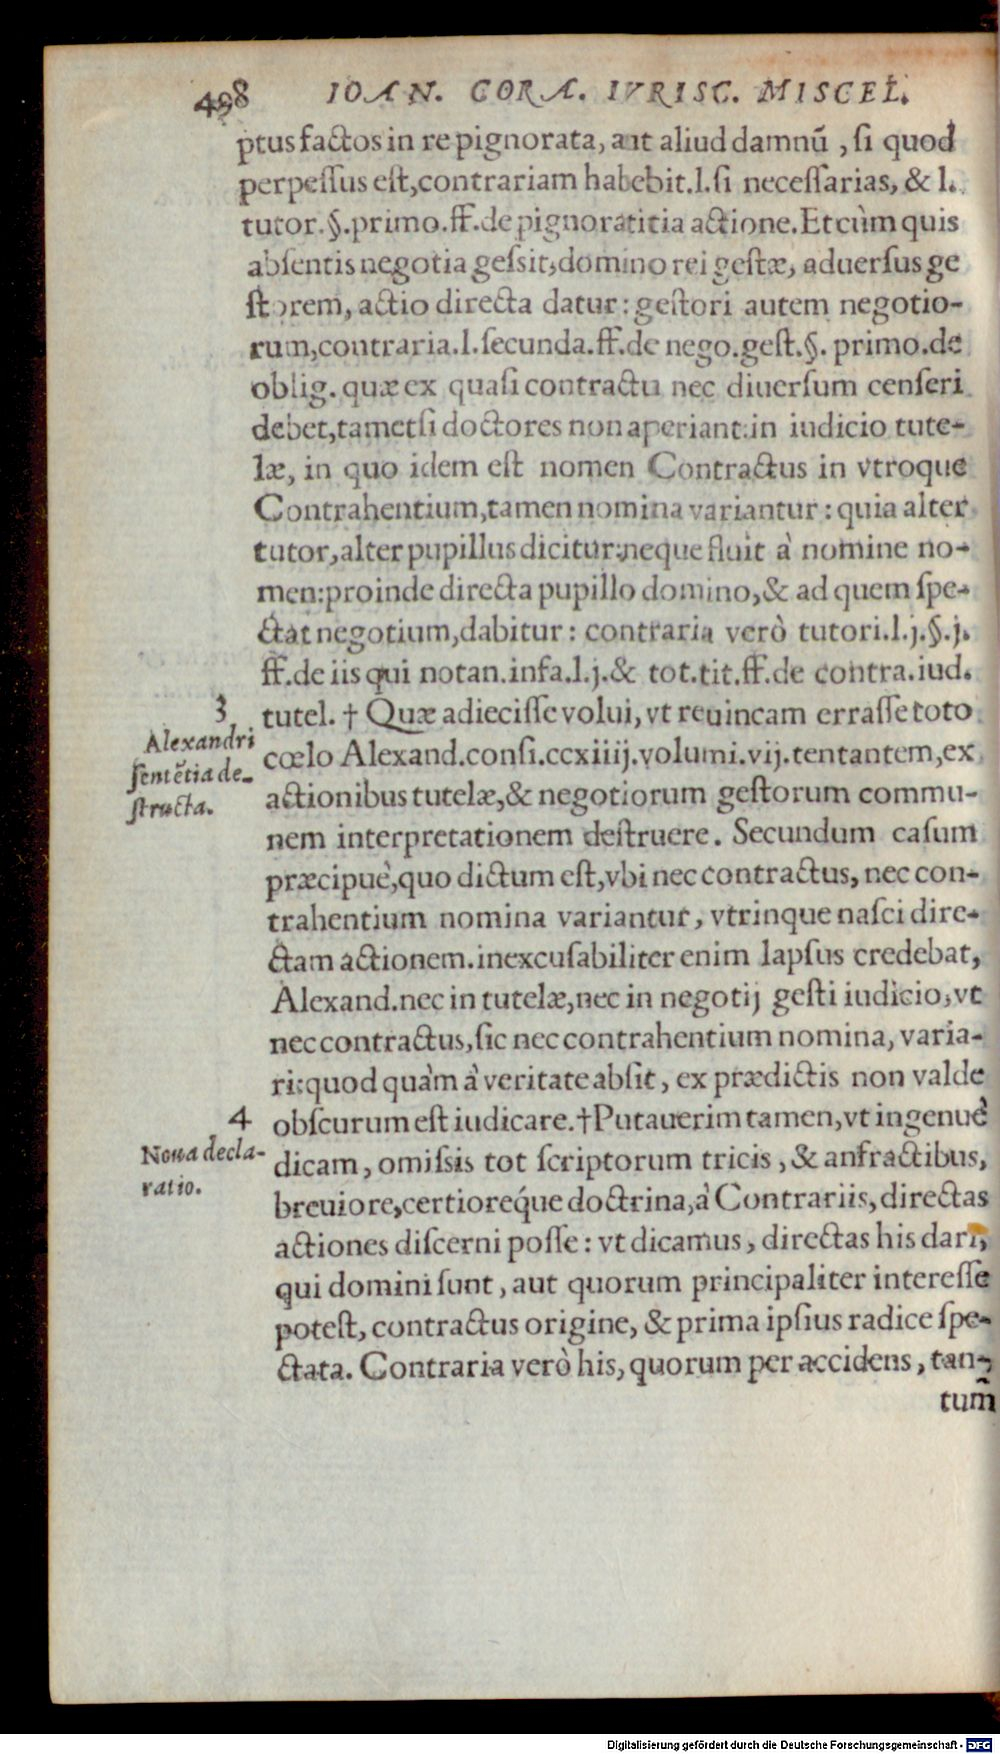 498 IOAN. CORA. IVRISC. MISCEL.
ptus factos in re pignorata, aut aliud damnũ, si quod
perpessus est, contrariam habebit. l. si necessarias, & l.
tutor. §. primo. ff. de pignoratitia actione. Et cùm quis
absentis negotia gessit, domino rei gestæ, aduersus ge
storem, actio directa datur: gestori autem negotio-
rum, contraria. l. secunda. ff. de nego. gest. §. primo. de
oblig. quæ ex quasi contractu nec diuersum censeri
debet, tametsi doctores non aperiant: in iudicio tute-
læ, in quo idem est nomen Contractus in vtroque
Contrahentium, tamen nomina variantur: quia alter
tutor, alter pupillus dicitur: neque fluit à nomine no-
men: proinde directa pupillo domino, & ad quem spe-
ctat negotium, dabitur: contraria verò tutori. l. j. §. j.
ff. de iis qui notan. infa. l. j. & tot. tit. ff. de contra. iud.
3
tutel. † Quæ adiecisse volui, vt reuincam errasse toto
Alexandri
sentẽtia de-
structa.
cœlo Alexand. consi. ccxiiij. volumi. vij. tentantem, ex
actionibus tutelæ, & negotiorum gestorum commu-
nem interpretationem destruere. Secundum casum
præcipuè, quo dictum est, vbi nec contractus, nec con-
trahentium nomina variantur, vtrinque nasci dire-
ctam actionem. inexcusabiliter enim lapsus credebat,
Alexand. nec in tutelæ, nec in negotij gesti iudicio, vt
nec contractus, sic nec contrahentium nomina, varia-
ri: quod quàm à veritate absit, ex prædictis non valde
4
obscurum est iudicare. † Putauerim tamen, vt ingenuè
Noua decla-
ratio.
dicam, omissis tot scriptorum tricis, & anfractibus,
breuiore, certioreq́ue doctrina, à Contrariis, directas
actiones discerni posse: vt dicamus, directas his dari,
qui domini sunt, aut quorum principaliter interesse
potest, contractus origine, & prima ipsius radice spe-
ctata. Contraria verò his, quorum per accidens, tan-
tum
Digitalisierung gefördert durch die Deutsche Forschungsgemeinschaft - DFG